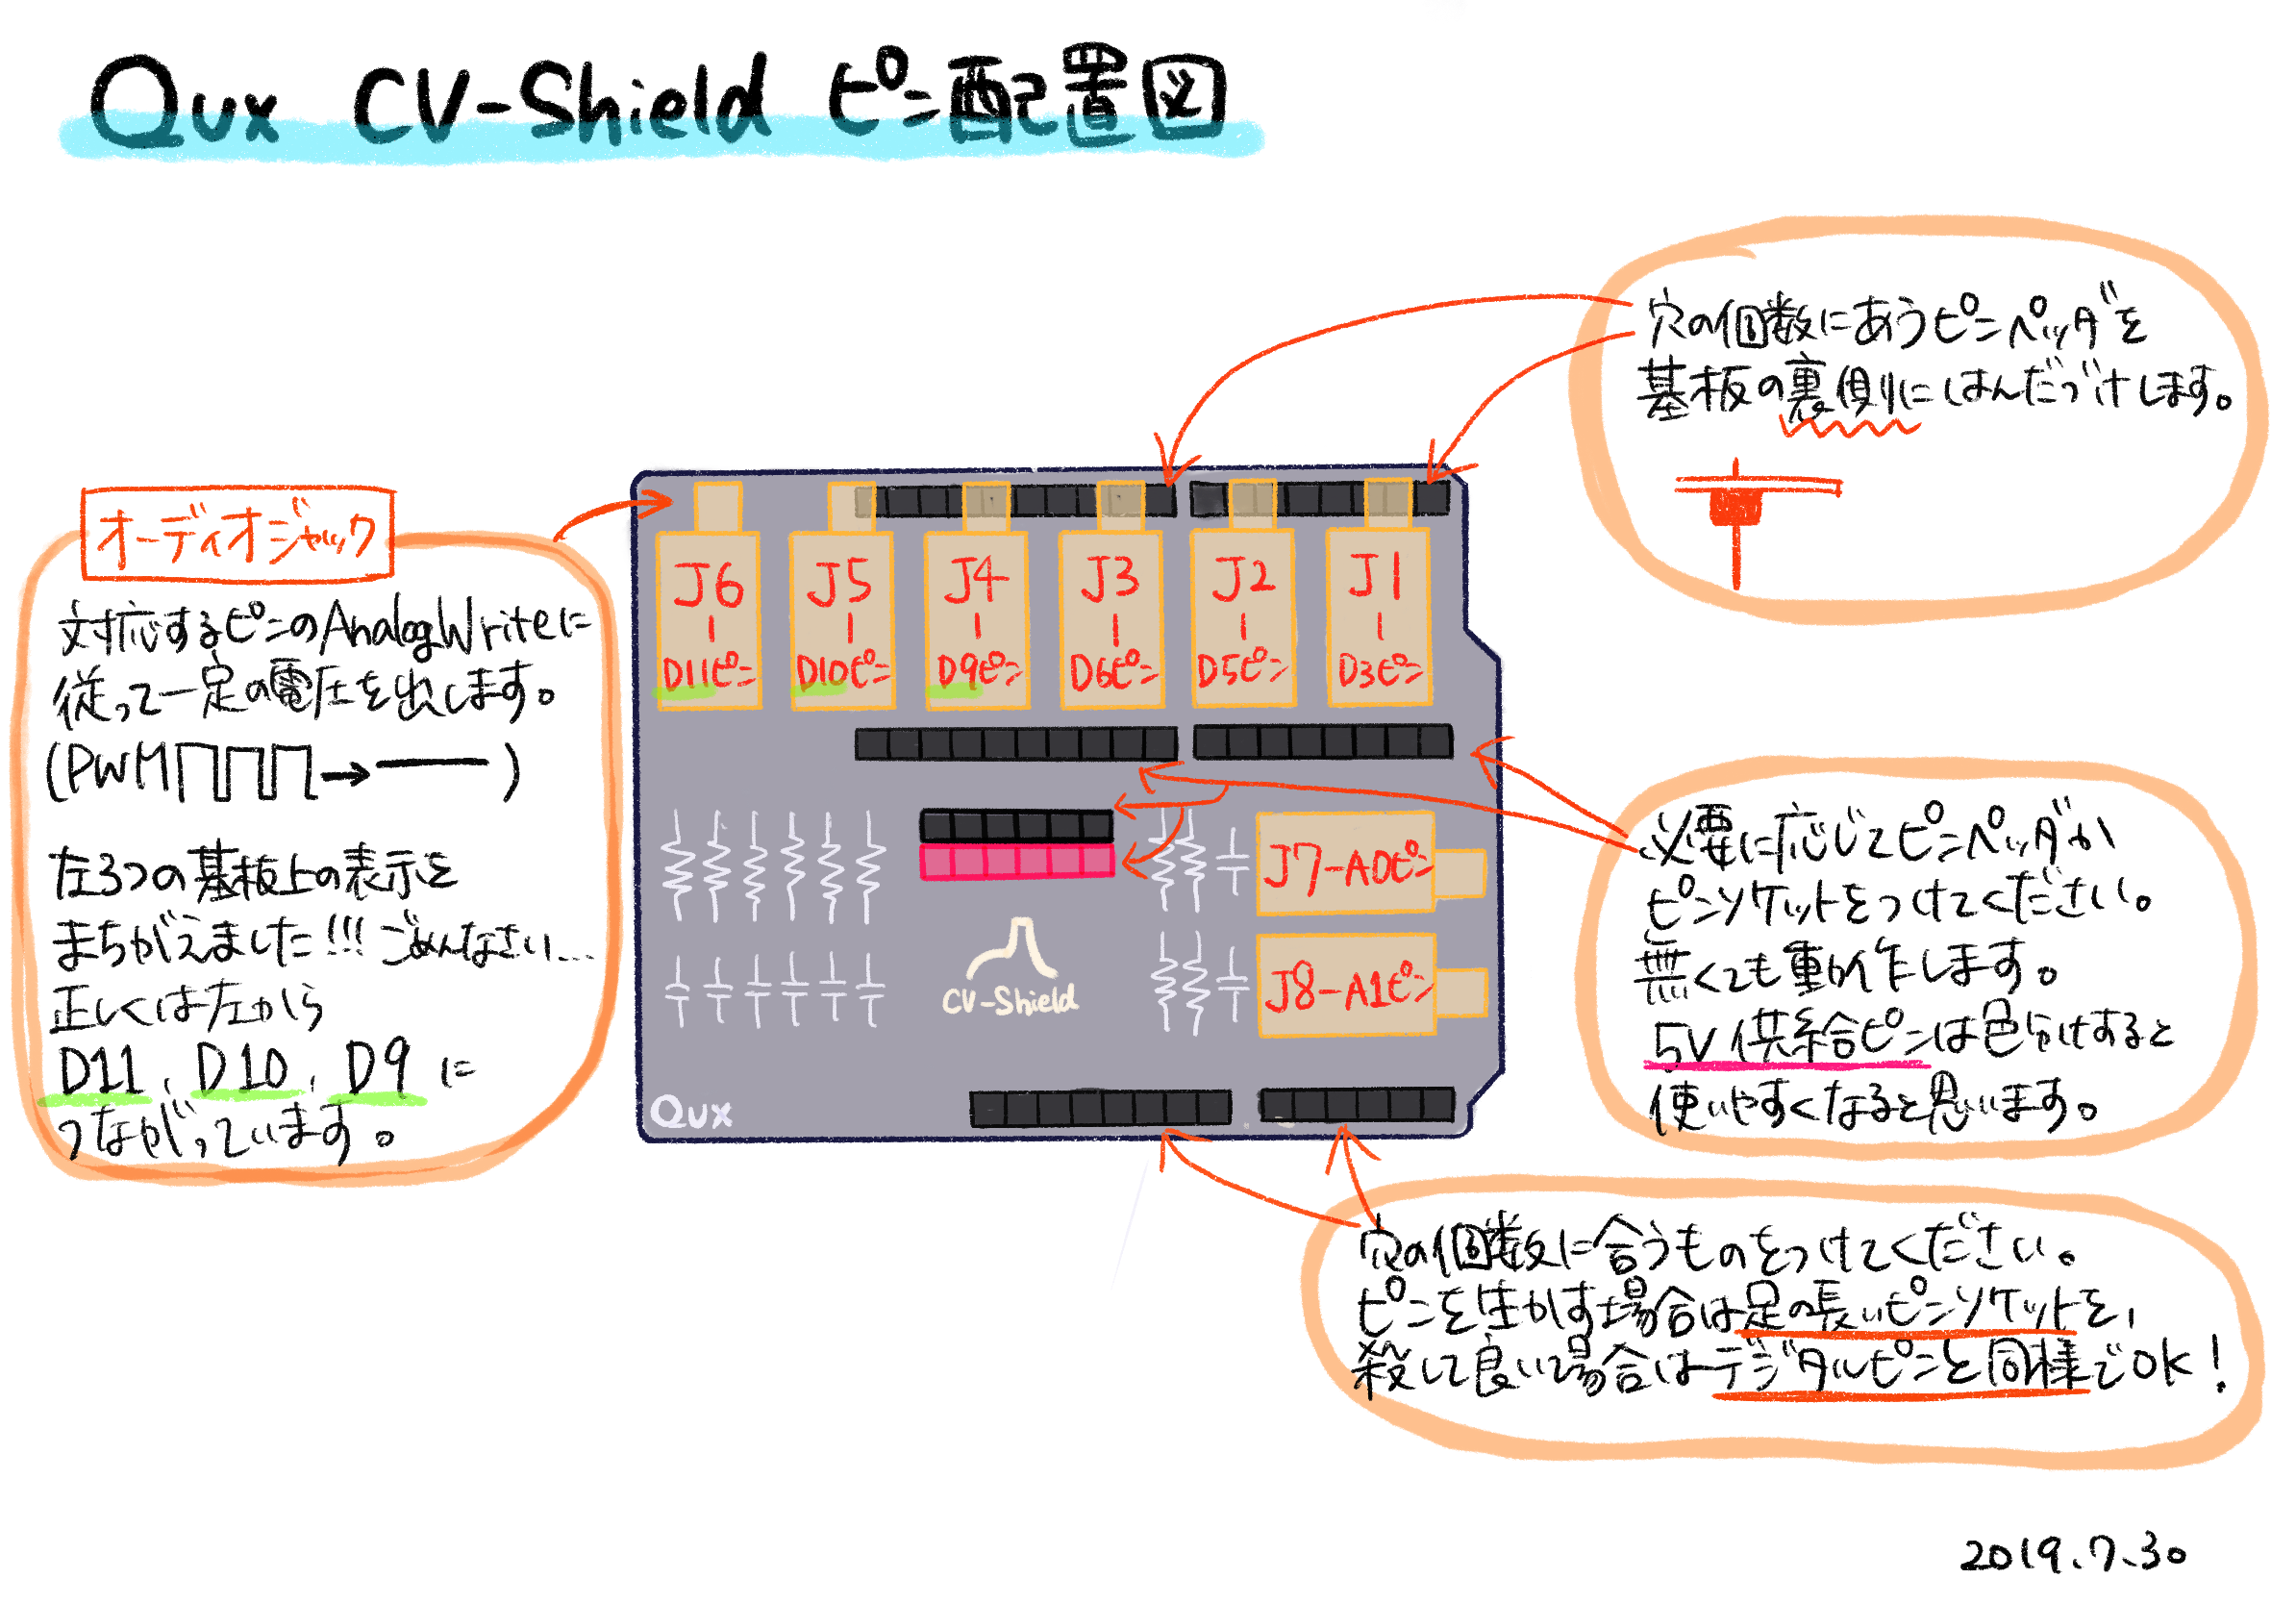 Qux CV-Shield ピン配置図
穴の個数にあうピンヘッダを
基板の裏側にはんだづけします。
オーディオジャック
対応するピンのAnalogWriteに
従って一定の電圧を出します。
(PWM→)
左3つの基板上の表示を
まちがえました!!!ごめんなさい...
正しくは左から
D11、D10、D9に
つながっています。
J6
D11ピン
J5
D10ピン
J4
D9ピン
J3
D6ピン
J2
D5ピン
J1
D3ピン
J7-A0ピン
J8-A1ピン
CV-Shield
Qux
必要に応じてピンヘッダか
ピンソケットをつけてください。
無くても動作します。
5V供給ピンは色分けすると
使いやすくなると思います。
穴の個数に合うものをつけてください。
ピンを生かす場合は足の長いピンソケットを、
殺して良い場合はデジタルピンと同様でOK!
2019.7.30